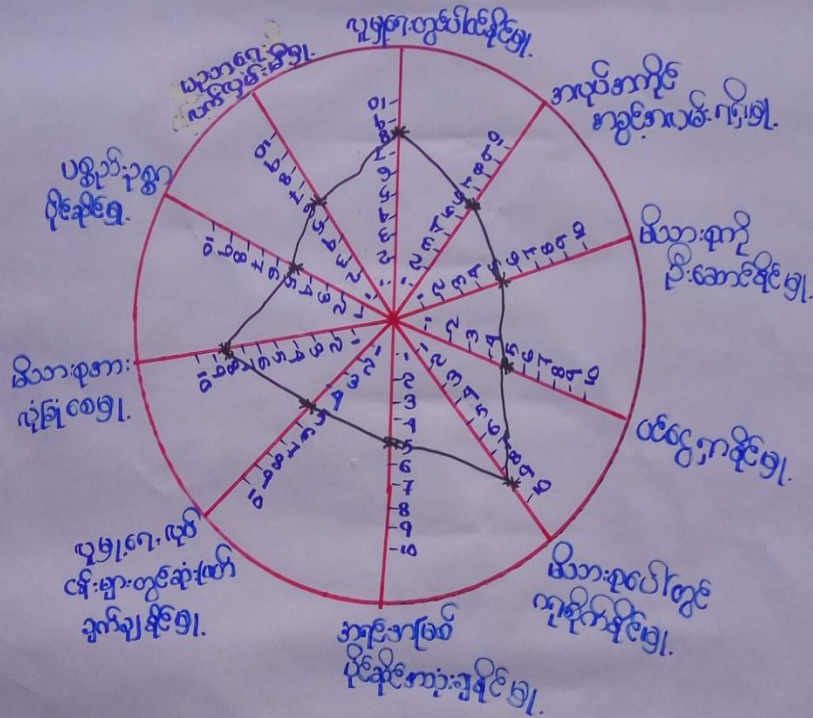 လူမှုရေးတွင်ပါဝင်နိုင်မှု.
အလုပ်အကိုင်
အခွင့်အလမ်းရရှိမှု.
မိသားစုကို
ဦးဆောင်နိုင်မှု.
ဝင်ငွေရှာနိုင်မှု.
မိသားစုပေါ်တွင်
ဂရုစိုက်နိုင်မှု.
အရင်းအမြစ်
ပိုင်ဆိုင်အသုံးချနိုင်မှု.
လူမှုရေးလုပ်
ငန်းများတွင်ဆုံးဖြတ်
ချက်ချနိုင်မှု.
မိသားစုအား
လုံခြုံစေမှု.
ပစ္စည်းဥစ္စာ
ပိုင်ဆိုင်မှု.
ပညာရေး
လက်လှမ်းမီမှု.
1 2 3 4 5 6 7 8 9 10
1 2 3 4 5 6 7 8 9 10
1 2 3 4 5 6 7 8 9 10
1 2 3 4 5 6 7 8 9 10
1 2 3 4 5 6 7 8 9 10
1 2 3 4 5 6 7 8 9 10
1 2 3 4 5 6 7 8 9 10
1 2 3 4 5 6 7 8 9 10
1 2 3 4 5 6 7 8 9 10
1 2 3 4 5 6 7 8 9 10